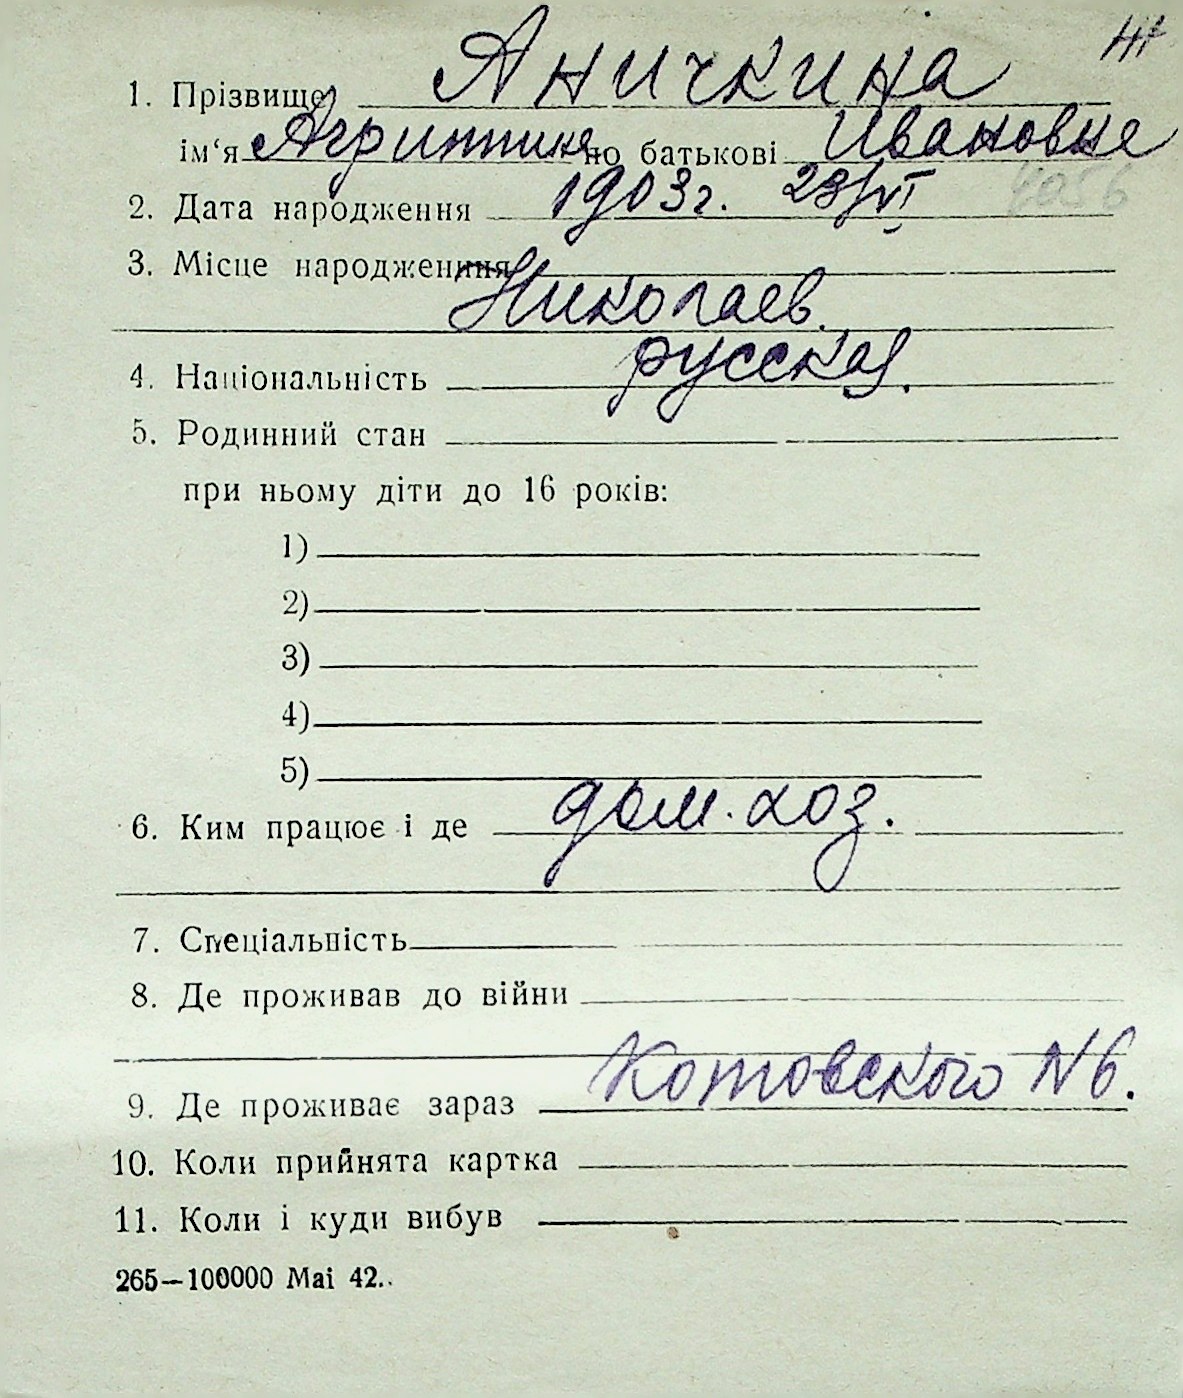 1. Прізвище Аничкина
ім‘я Агриппина по батькові Ивановна
2. Дата народження 1903г. 28/VI 4056
3. Місце народження
Николаев.
4. Національність русская.
5. Родинний стан
при ньому діти до 16 років:
1)
2)
3)
4)
5)
6. Ким працює і де дом. хоз.
7. Спеціальність
8. Де проживав до війни
9. Де проживає зараз Котовского N 6.
10. Коли прийнята картка
11. Коли і куди вибув
265—100000 Mai 42.